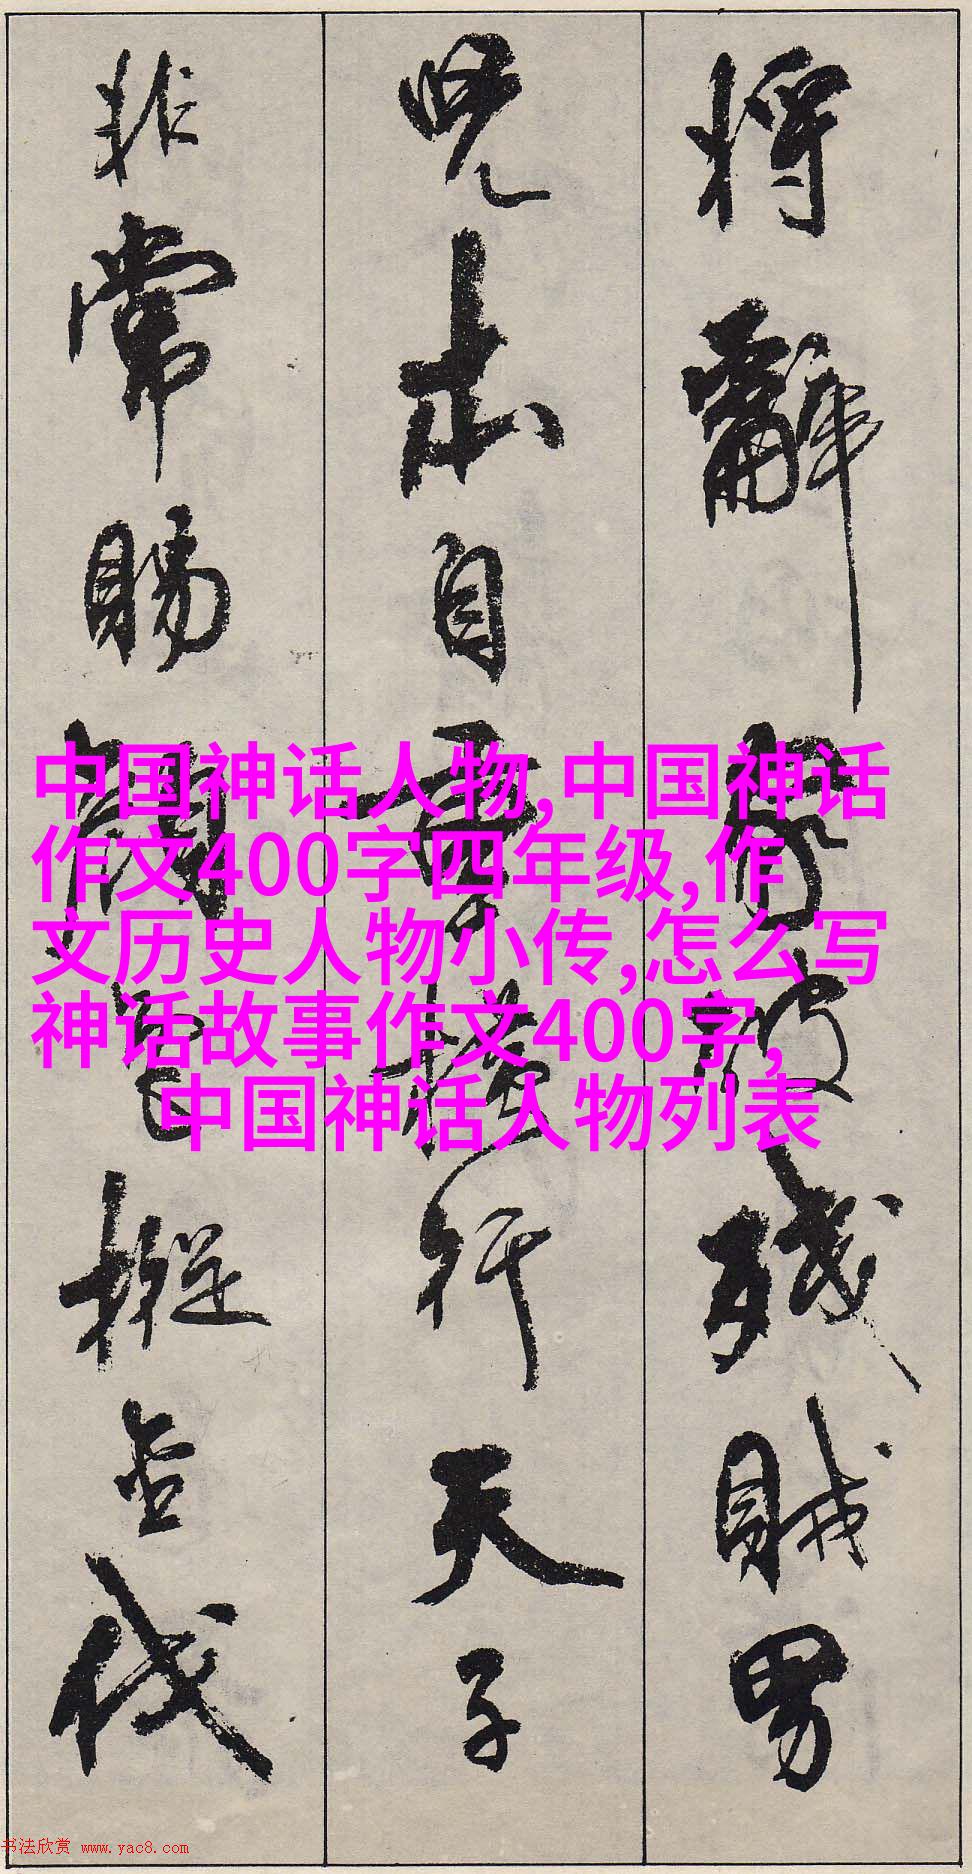 將辭家破殘賊男
兒本自重橫行天子
非常賜顏色摐金伐
中国神话人物,中国神话
作文400字四年级,作
文历史人物小传,怎么写
神话故事作文400字,
中国神话人物列表
书法欣赏 www.yac8.com